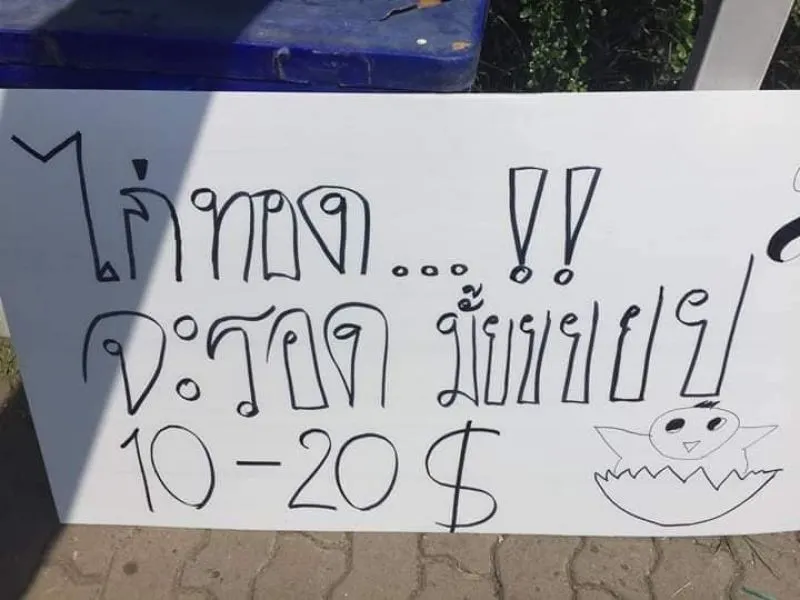 ไก่ทอด...!!
จะรอด มั้ยยยยย
10-20$